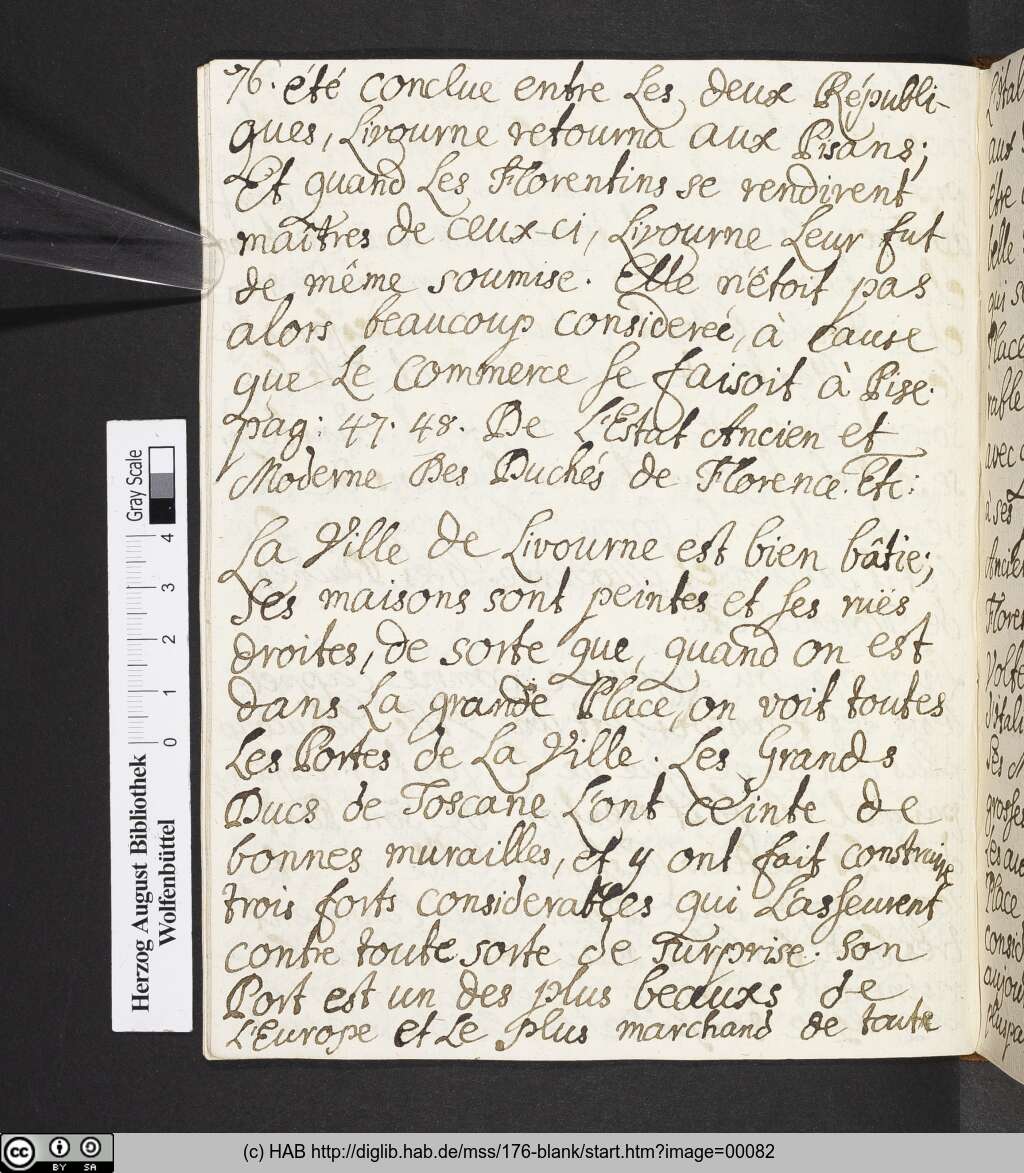 76. été conclue entre Les deux Républi-
ques, Livourne retourna aux Pisans;
Et quand Les Florentins se rendirent
maîtres de ceux-ci, Livourne Leur fut
de même soumise. Elle n'étoit pas
alors beaucoup considereé, à cause
que Le Commerce se faisoit à Pise.
pag: 47. 48. De L'Estat Ancien et
Moderne Des Duchés de Florence. Etc:
La Ville de Livourne est bien bâtie;
Ses maisons sont peintes et ses ruës
droites, de sorte que, quand on est
dans La grande Place, on voit toutes
Les Portes de La Ville. Les Grands
Ducs de Toscane L'ont ceinte de
bonnes murailles, et y ont fait construire
trois forts considerables qui L'asseurent
contre toute sorte de Surprise. Son
Port est un des plus beauxs de
L'Europe et Le plus marchand de toute
Herzog August Bibliothek
Wolfenbüttel
Gray Scale
0 1 2 3 4
cc BY SA
(c) HAB http://diglib.hab.de/mss/176-blank/start.htm?image=00082